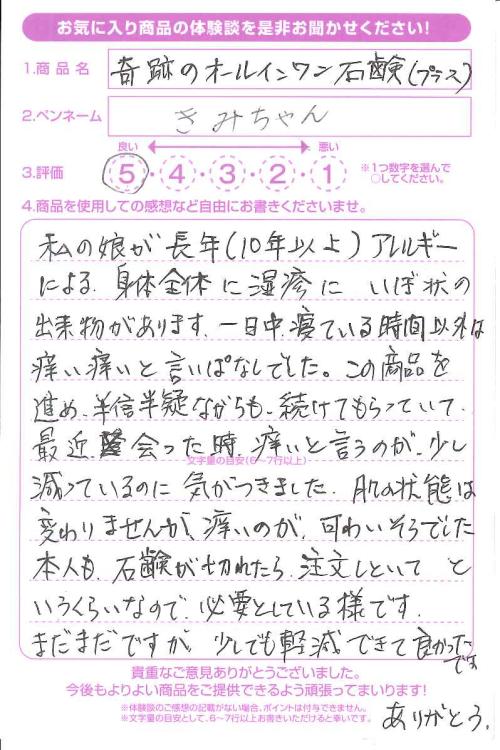 お気に入り商品の体験談を是非お聞かせください!
1.商品名 奇跡のオールインワン石鹸(プラス)
2.ペンネーム きみちゃん
良い 悪い
3.評価 5・4・3・2・1 ※1つ数字を選んで○してください。
4.商品を使用しての感想など自由にお書きくださいませ。
私の娘が長年(10年以上)アレルギー
による、身体全体に湿疹に いぼ状の
出来物があります、一日中、寝ている時間以外は
痒い痒いと言いぱなしでした。この商品を
進め、半信半疑ながらも、続けてもらっていて、
最近 会った時、痒いと言うのが、少し
文字量の目安(6~7行以上)
減っているのに気がつきました。肌の状態は
変わりませんが、痒いのが、可わいそうでした
本人も、石鹸が切れたら、注文しといて と
いうくらいなので、必要としている様です。
まだまだですが、少しでも軽減できて良かった
です
貴重なご意見ありがとうございました。
今後もよりよい商品をご提供できるよう頑張ってまいります!
※体験談のご感想の記載がない場合、ポイントは付与できません。
※文字量の目安として、6~7行以上お書きいただけると幸いです。
ありがとう。